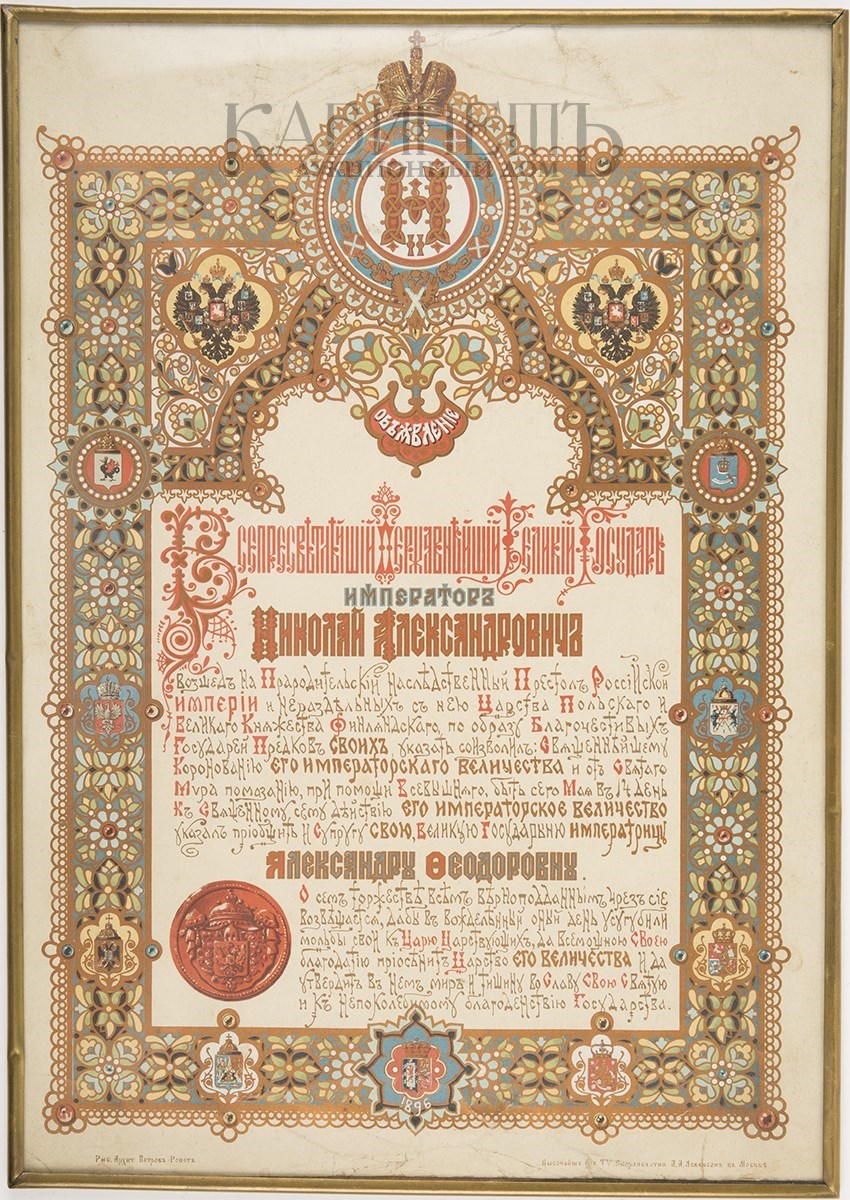 КАБИНЕТЪ
АУКЦИОННЫЙ ДОМ
Н
II
ОБЪЯВЛЕНІЕ
Всепресвѣтлѣйшій Державнѣйшій Великій Государь
Императоръ
Николай Александровичъ
возшедъ на Прародительскій наслѣдственный Престолъ Россійской
Имперіи и нераздѣльныхъ съ нею Царства Польскаго и
Великаго Княжества Финляндскаго, по образу Благочестивыхъ
Государей Предковъ своихъ, указать соизволилъ: Священнѣйшему
Коронованію его императорскаго величества и отъ Святаго
Мура помазанію, при помощи Всевышняго, быть сего Мая въ 14 день
Къ Священному сему дѣйствію его императорское величество
указалъ пріобщить и Супругу свою, Великую Государыню императрицу
Александру Ѳеодоровну.
О семъ торжествѣ всѣмъ вѣрноподданнымъ чрезъ сіе
возвѣщается, дабы въ вожделѣнный оный день усугубили
мольбы свои къ Царю Царствующихъ, да всемощною Своею
благодатію пріосѣнитъ Царство его величества и да
утвердитъ въ немъ миръ и тишину во Славу Свою Святую
и къ непоколебимому благоденствію Государства.
1896
Рис. Архит. Петровъ-Ропетъ
Высочайше утв. Тво Скоропечатни А.А. Левенсонъ въ Москвѣ